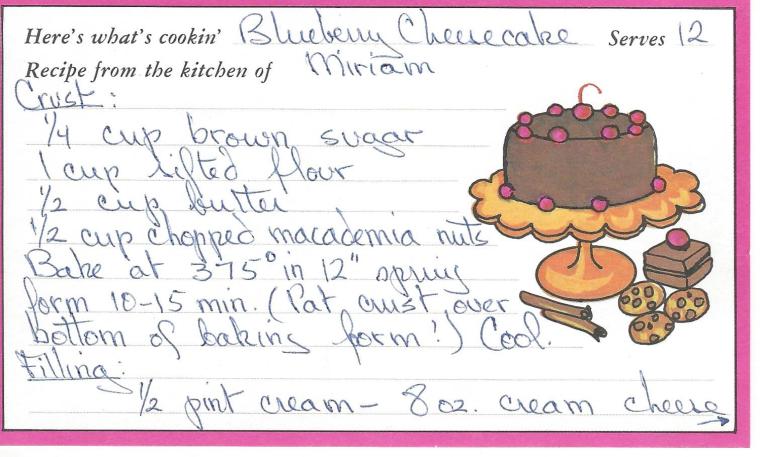 Here's what's cookin' Blueberry Cheesecake Serves 12
Recipe from the kitchen of Miriam
Crust:
1/4 cup brown sugar
1 cup sifted flour
1/2 cup butter
1/2 cup chopped macademia nuts
Bake at 375° in 12" spring
form 10-15 min. (Pat crust over
bottom of baking form!) Cool.
Filling:
1/2 pint cream - 8 oz. cream cheese
→